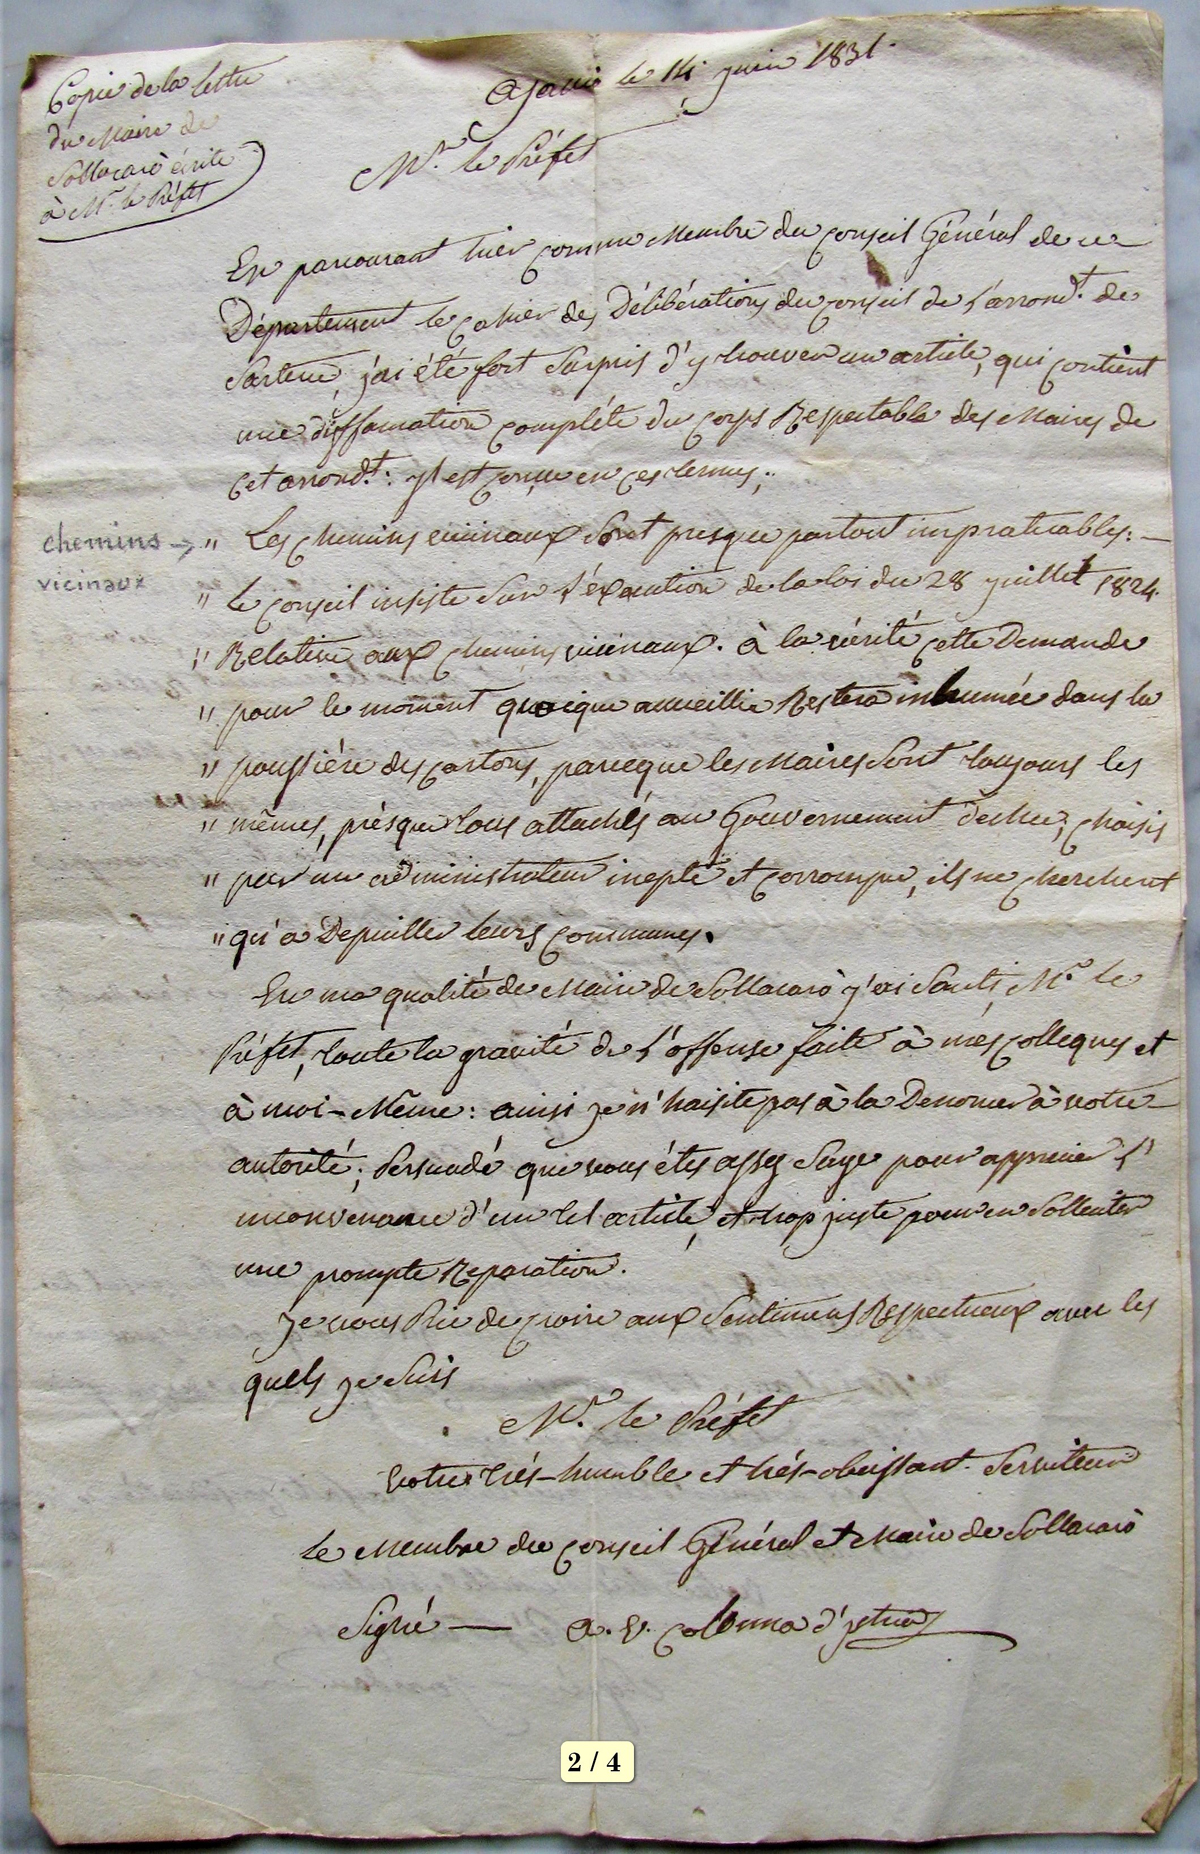 Copie de la lettre
du Maire de
Sollacarò écrite
à Mr. le Préfet
Ajaccio le 14 juin 1831.
Mr. le Préfet
En parcourant hier comme Membre du Conseil Général de ce
Département le cahier des Délibérations du conseil de l'arrondt. de
Sartene, j'ai été fort surpris d'y trouver un article, qui contient
une diffamation complète du corps Respectable des Maires de
cet arrondt: il est conçu en ces termes;
chemins → vicinaux
" Les chemins vicinaux sont presque partout impraticables: —
" Le conseil insiste sur l'éxécution de la loi du 28 juillet 1824.
" Relative aux chemins vicinaux. à la vérité cette Demande
" pour le moment quoique accueillie Restera inhumée dans la
" poussière des cartons, parceque les Maires sont toujours les
" mêmes, prèsque tous attachés au Gouvernement déchu, choisis
" par un administrateur inepte et corrompu, ils ne cherchent
" qu'a Depuiller leurs communes.
En ma qualité de Maire de Sollacarò j'ai senti, Mr. le
Préfet, toute la gravité de l'offense faite à mes collegues et
à moi-Même: ainsi je n'haisite pas à la Denoncer à votre
autorité; Persuadé que vous étes assez sage pour apprecier l'
inconvenance d'un tel article, et trop juste pour en solleciter
une prompte Reparation.
Je vous Prie de croire aux sentimens Respectueux avec les
quels je suis
Mr. le Préfet
Votre très-humble et très-obeissant serviteur
Le Membre du Conseil Général et Maire de Sollacarò
Signé — a. v. Colonna d'istria
2 / 4